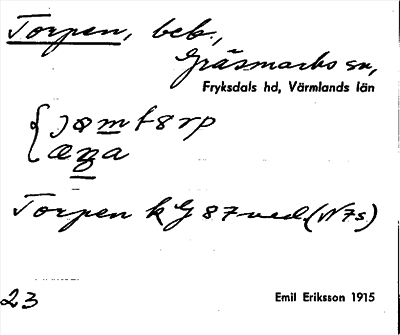 Torpen, beb.,
Gräsmarks sn,
Fryksdals hd, Värmlands län
Torpen k G 87 ved. (N7s)
23
Emil Eriksson 1915